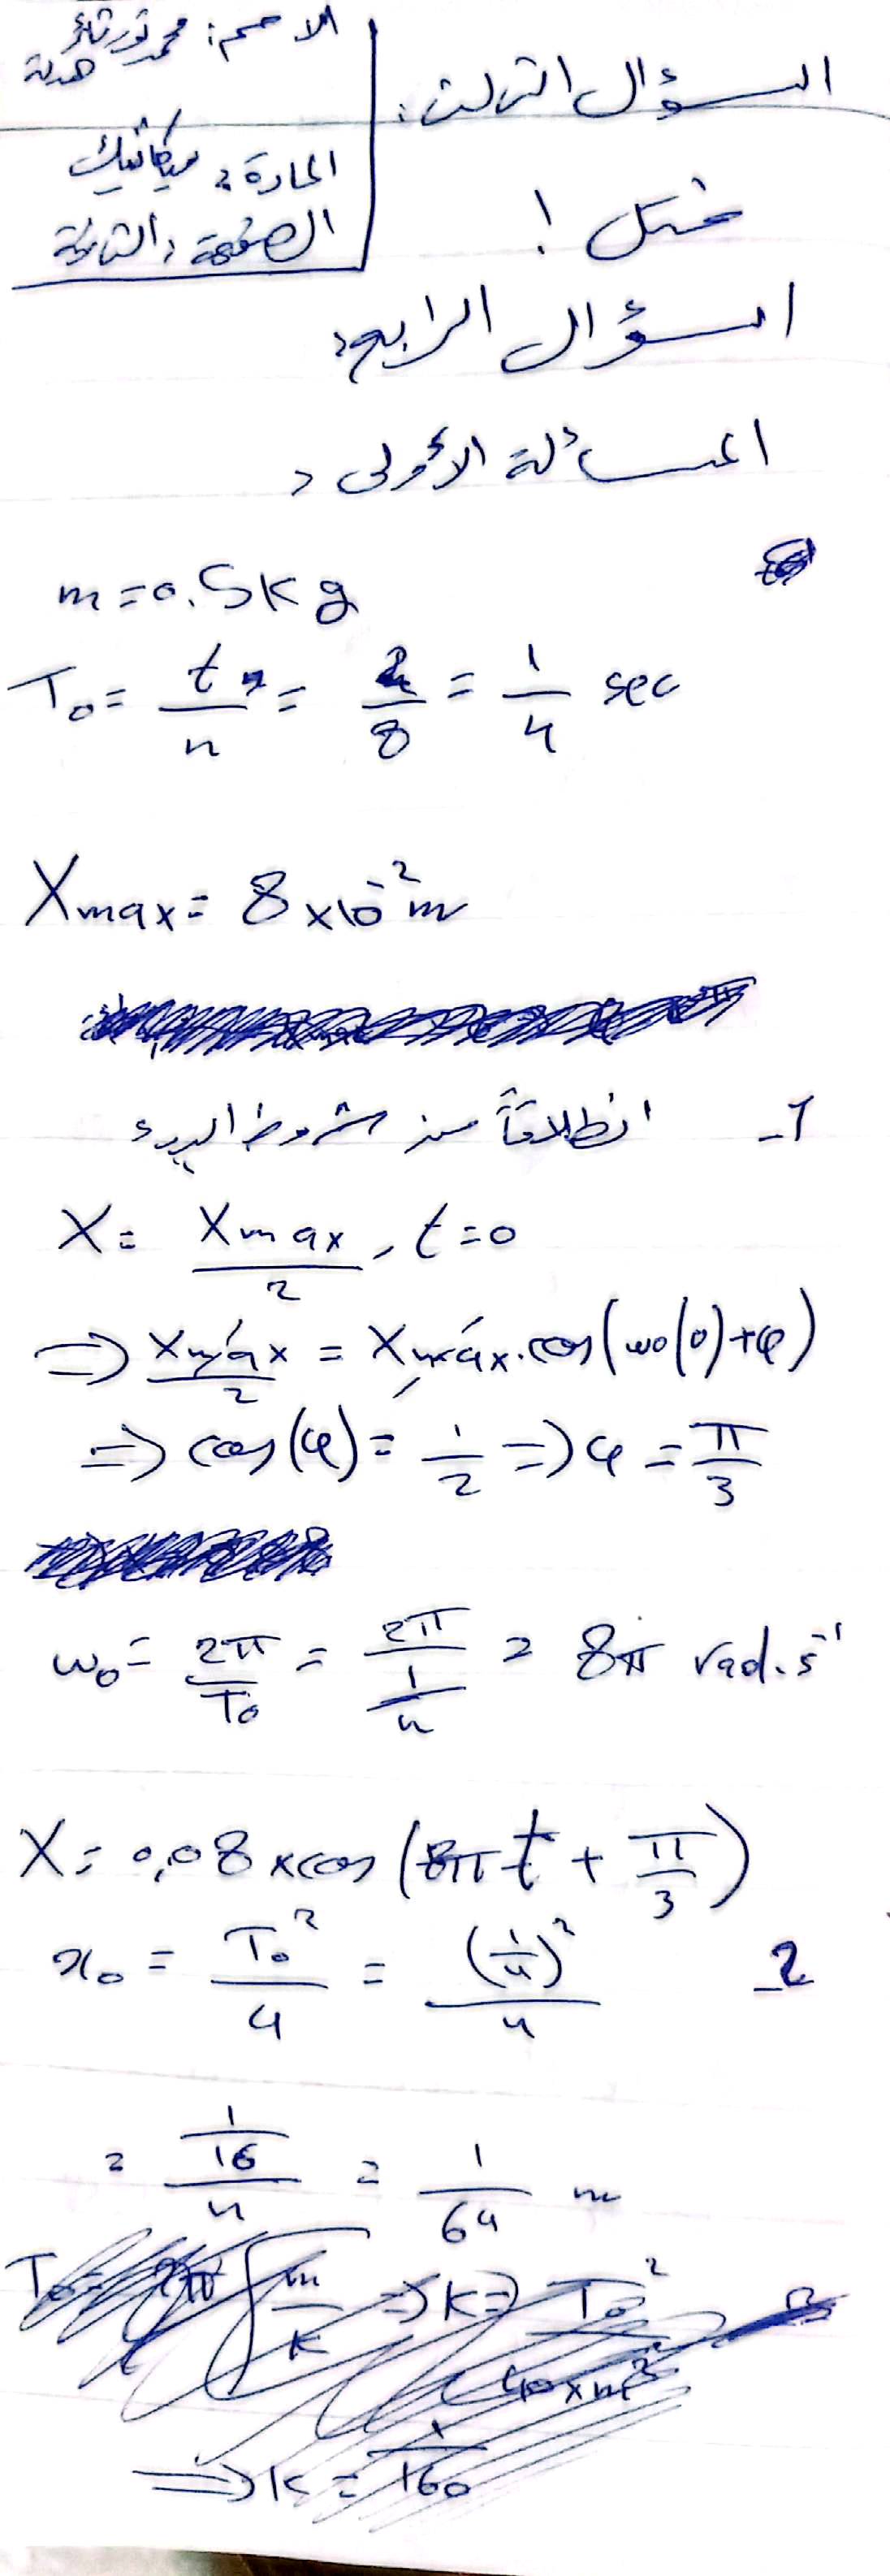 الاسم: محمد نور ثائر
هدلة
المادة: ميكانيك
الصفحة: الثانية
السؤال الثالث:
السؤال الرابع:
المسألة الأولى:
m = 0.5 kg
T₀ = t / n = 2 / 8 = 1 / 4 sec
Xmax = 8 × 10⁻² m
1- انطلاقاً من شروط البدء
X = Xmax / 2 , t = 0
⇒ Xmax / 2 = Xmax . cos(ω₀(0) + φ)
⇒ cos(φ) = 1 / 2 ⇒ φ = π / 3
ω₀ = 2π / T₀ = 2π / (1 / 4) = 8π rad.s⁻¹
X = 0,08 × cos(8π t + π / 3)
2- x₀ = T₀² / 4 = (1/4)² / 4
= (1 / 16) / 4 = 1 / 64 m